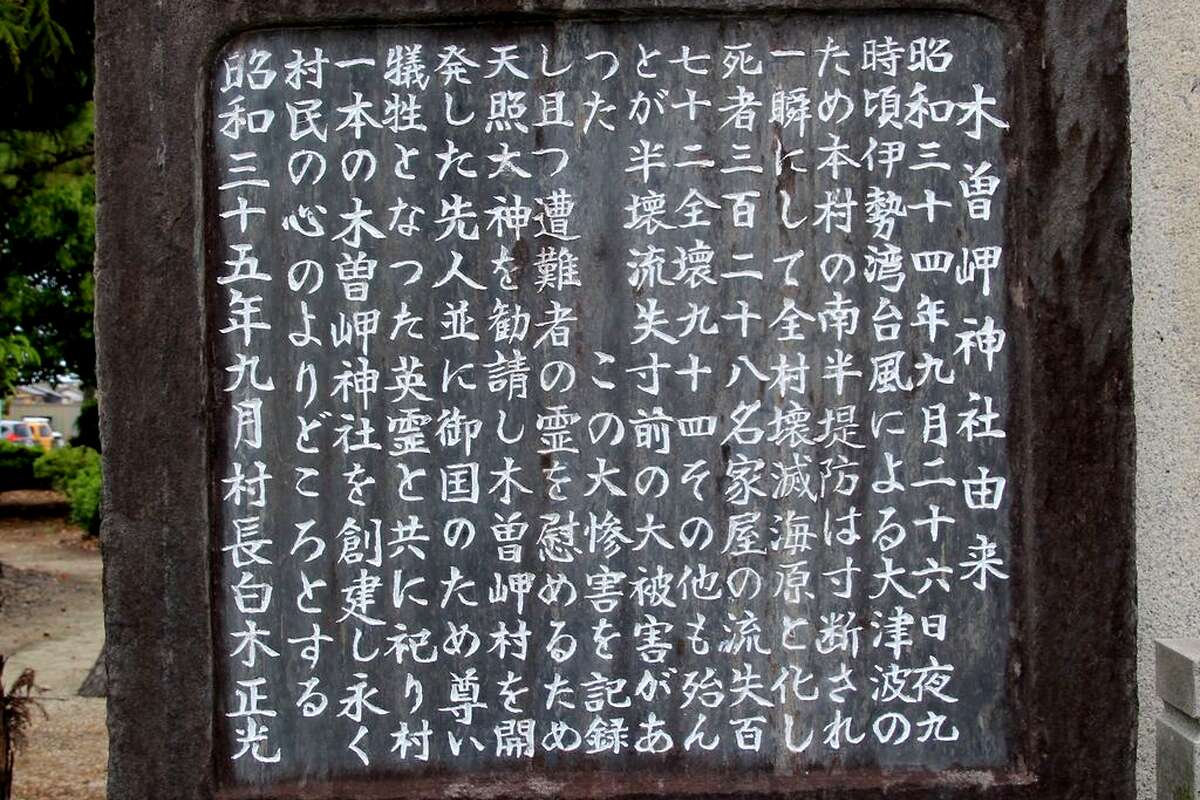 木曽岬神社由来
昭和三十四年九月二十六日夜九
時頃伊勢湾台風による大津波の
ため本村の南半堤防は寸断され
一瞬にして全村壊滅海原と化し
死者三百二十八名家屋の流失百
七十二全壊九十四その他も殆ん
とが半壊流失寸前の大被害があ
つた　この大惨害を記録
し且つ遭難者の霊を慰めるため
天照大神を勧請し木曽岬村を開
発した先人並に御国のため尊い
犠牲となつた英霊と共に祀り村
一本の木曽岬神社を創建し永く
村民の心のよりどころとする
昭和三十五年九月村長白木正光